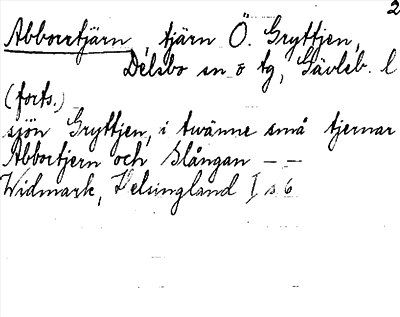 2
Abborrtjärn, tjärn Ö. Gryttjen,
Delsbo sn o tg, Gävleb. l
(forts.)
sjön Gryttjen, i twänne små tjernar
Abbortjern och Slångan – –
Widmark, Helsingland I s 6